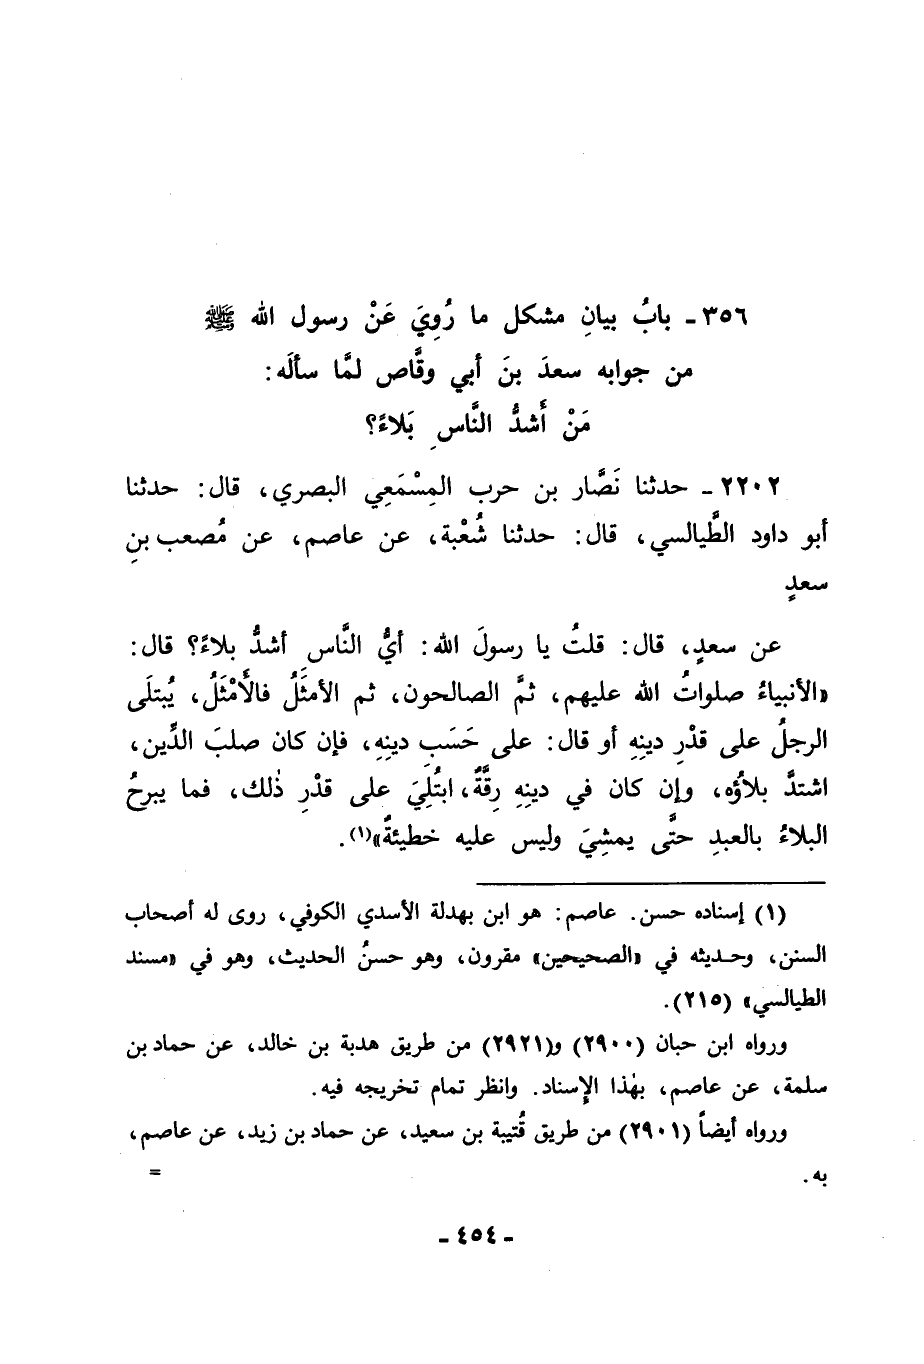 ٣٥٦ ـ بابُ بيانِ مشكل ما رُوِيَ عَنْ رسول الله ﷺ
من جوابه سعدَ بنَ أبي وقَّاص لمَّا سألَه:
مَنْ أَشدُّ النَّاسِ بَلاءً؟
٢٢٠٢ ـ حدثنا نَصَّار بن حرب المِسْمَعِي البصري، قال: حدثنا
أبو داود الطَّيالسي، قال: حدثنا شُعْبة، عن عاصم، عن مُصعب بنِ
سعدٍ
عن سعدٍ، قال: قلتُ يا رسولَ الله: أيُّ النَّاسِ أشدُّ بلاءً؟ قال:
«الأنبياءُ صلواتُ الله عليهم، ثمَّ الصالحون، ثم الأمثَلُ فالأَمْثَلُ، يُبتلَى
الرجلُ على قدْرِ دينِهِ أو قال: على حَسَبِ دينِهِ، فإن كان صلبَ الدِّين،
اشتدَّ بلاؤه، وإن كان في دينِهِ رِقَّةٌ، ابتُلِيَ على قدْرِ ذٰلك، فما يبرحُ
البلاءُ بالعبدِ حتَّى يمشِيَ وليس عليه خطيئةٌ»(١).
(١) إسناده حسن. عاصم: هو ابن بهدلة الأسدي الكوفي، روى له أصحاب
السنن، وحديثه في «الصحيحين» مقرون، وهو حسنُ الحديث، وهو في «مسند
الطيالسي» (٢١٥).
ورواه ابن حبان (٢٩٠٠) و(٢٩٢١) من طريق هدبة بن خالد، عن حماد بن
سلمة، عن عاصم، بهٰذا الإسناد. وانظر تمام تخريجه فيه.
ورواه أيضاً (٢٩٠١) من طريق قُتيبة بن سعيد، عن حماد بن زيد، عن عاصم،
به. =
ـ ٤٥٤ ـ